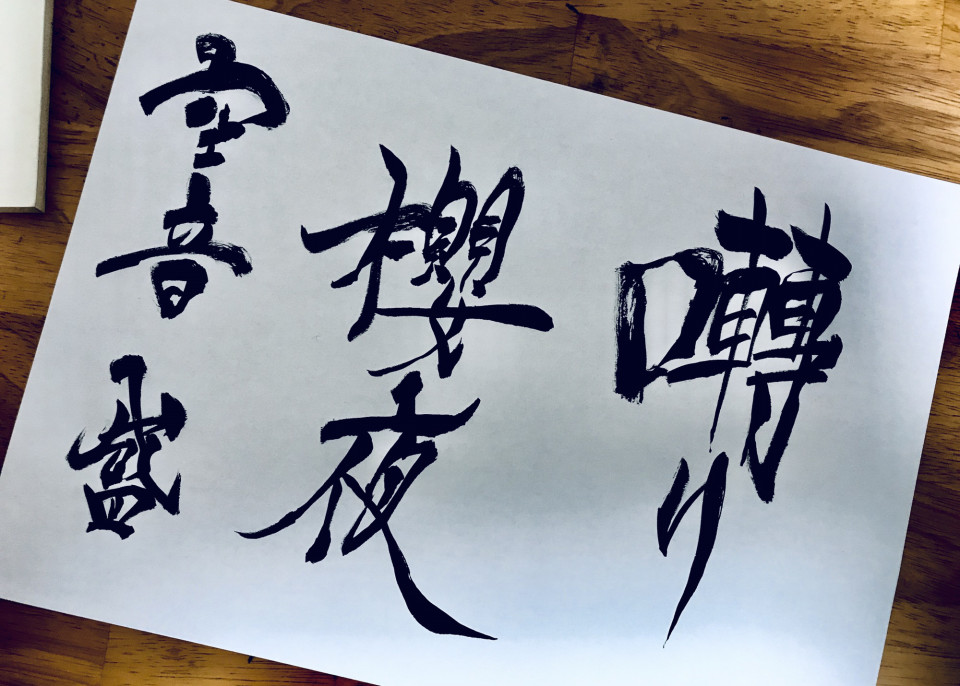 囀り
櫻夜
空音盛